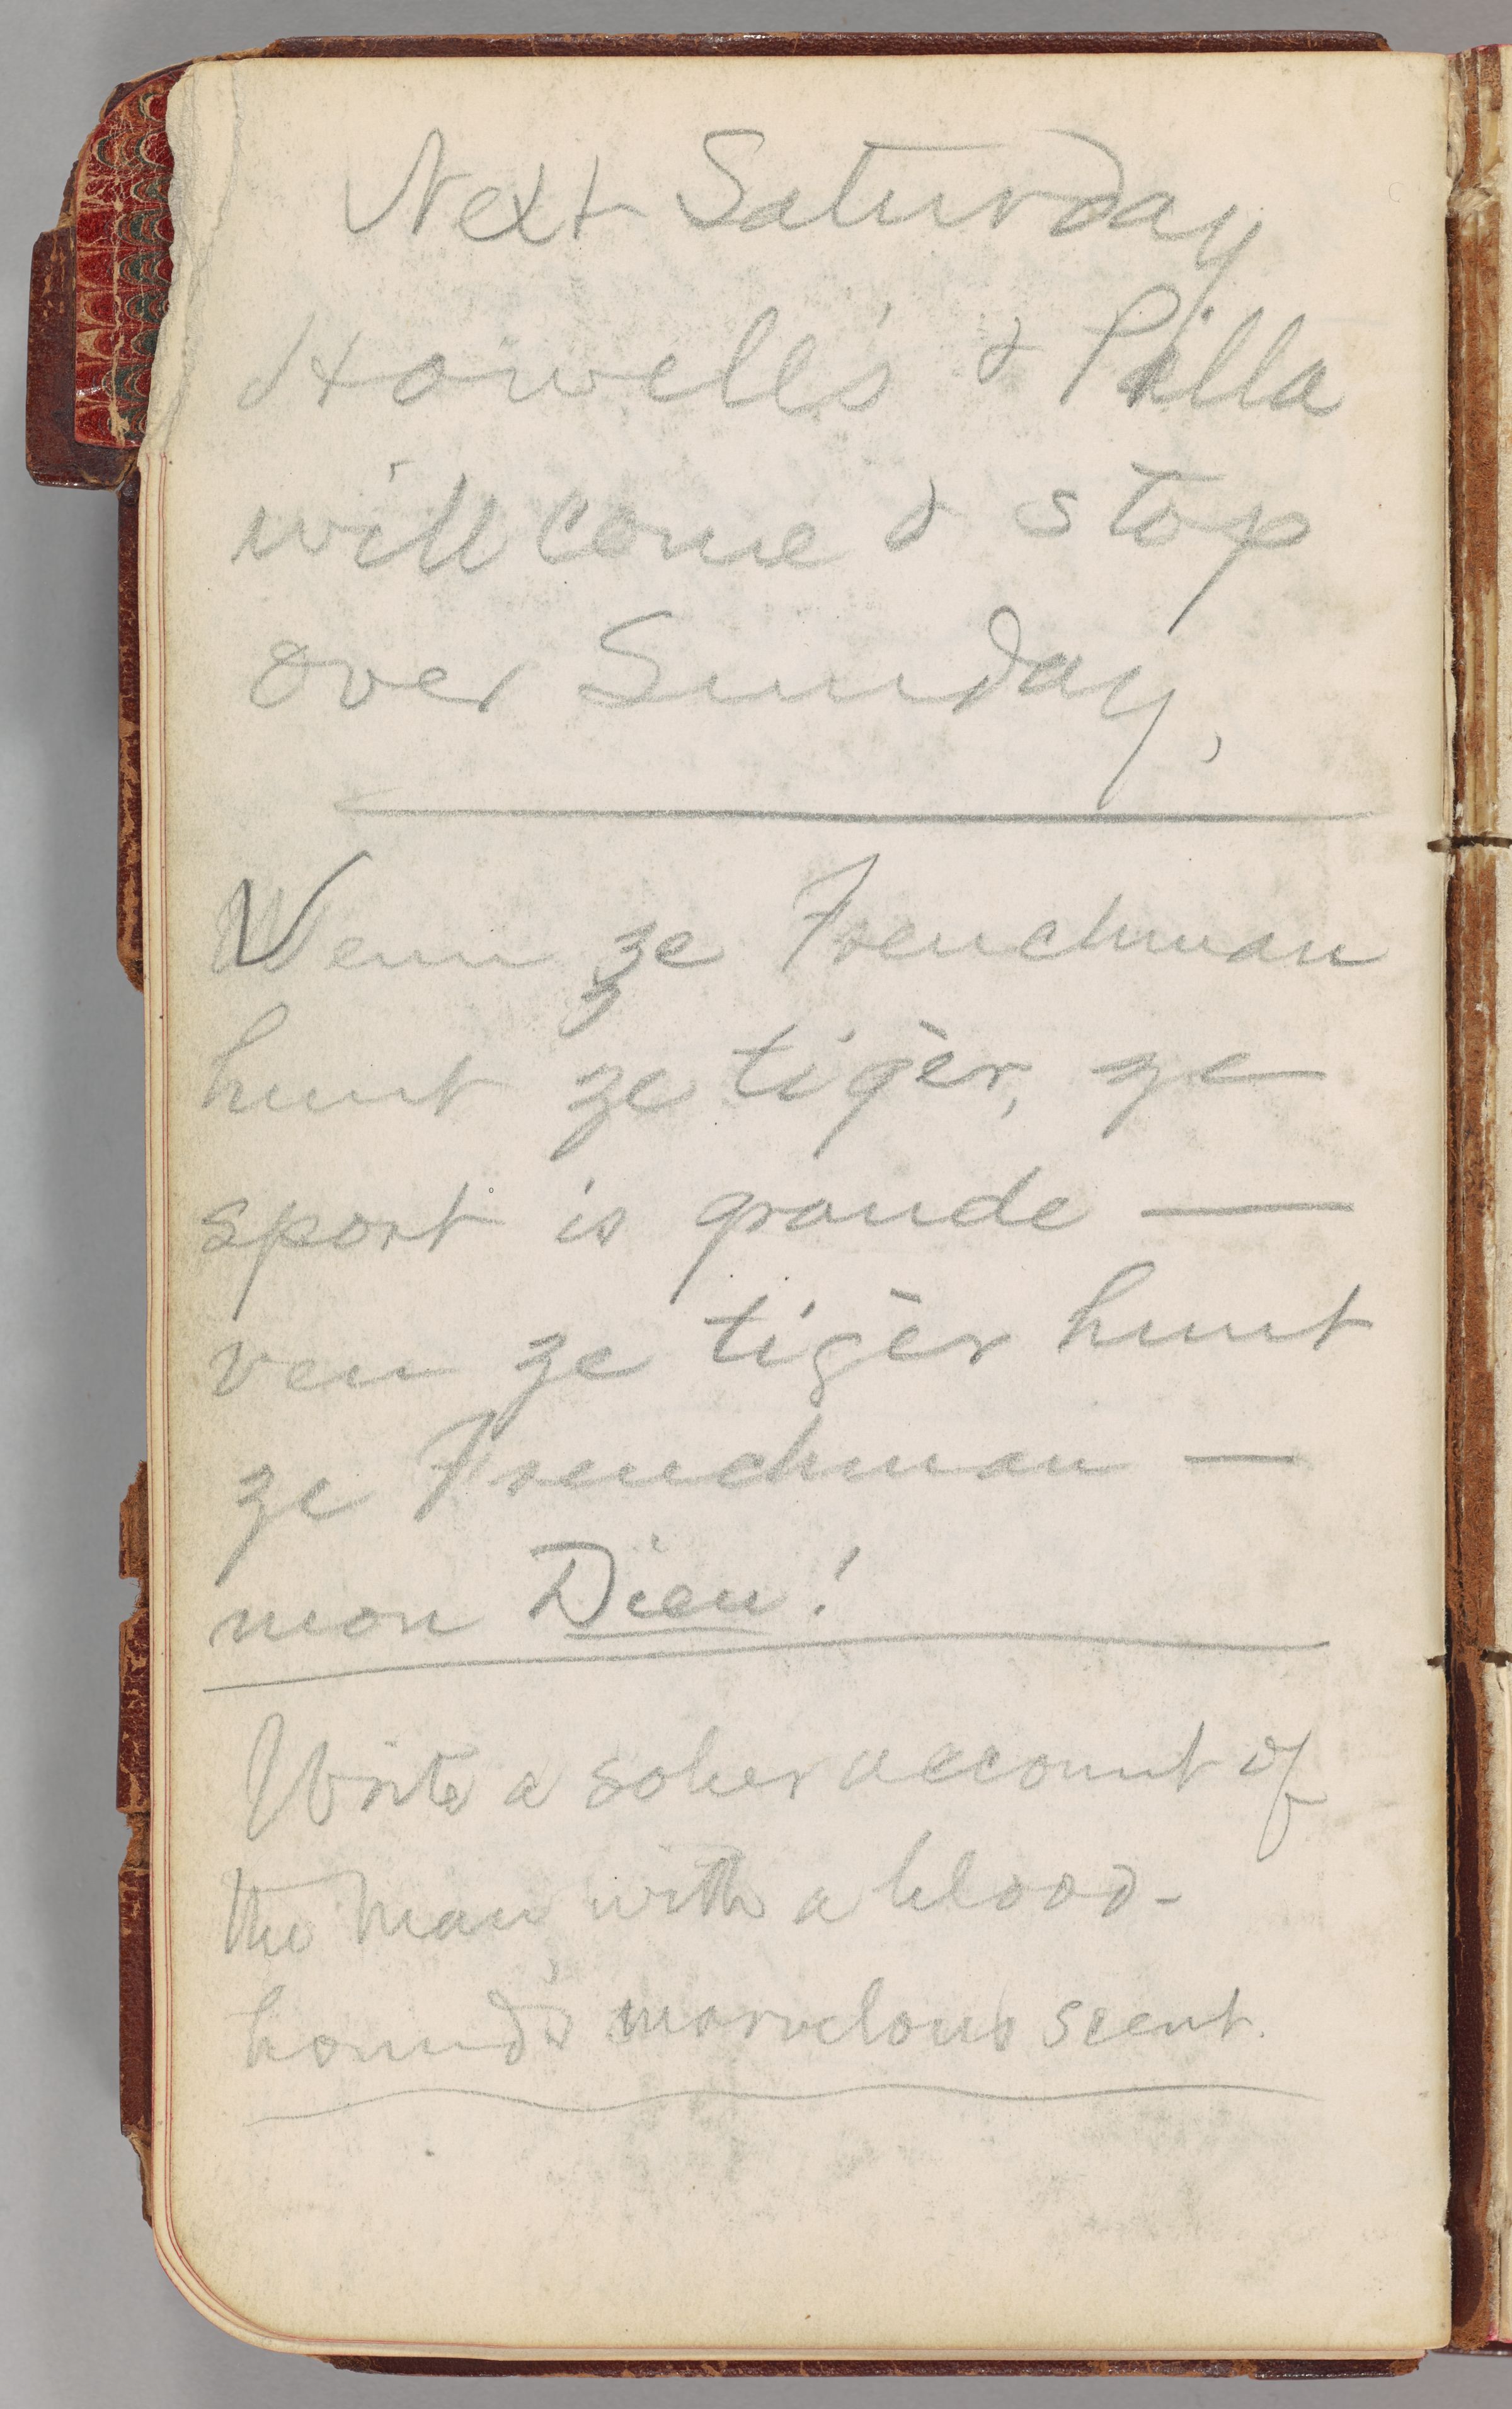 Next Saturday
Howells & Pilla
will come & stop
over Sunday,
Venn ze Frenchman
hunt ze tigèr, ze
sport is grande —
ven ze tigèr hunt
ze Frenchman —
mon Dieu!
Write a sober account of
the man with a blood-
hound's marvelous scent.